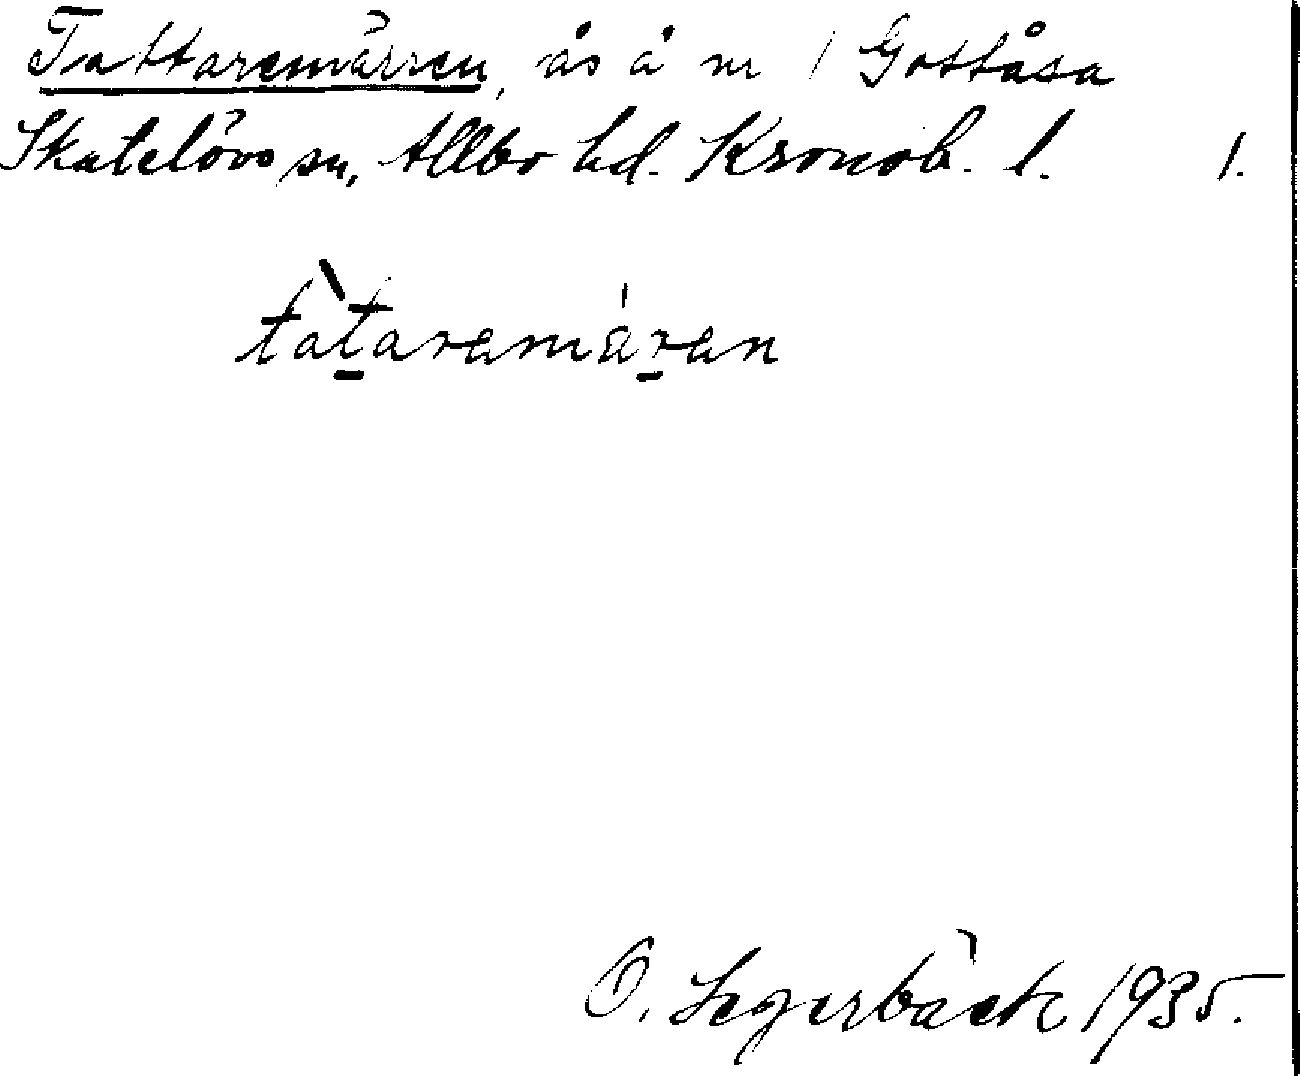 Tattaremärren, ås å nr 1 Gottåsa
Skatelövs sn, Allbo hd. Kronob. l. 1.
tàtaremä́ren
O. Segerbäck 1935.